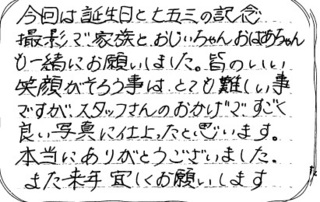 今回は誕生日と七五三の記念
撮影で家族と、おじいちゃん、おばあちゃん
も一緒にお願いしました。皆のいい
笑顔がそろう事は、とても難しい事
ですが、スタッフさんのおかげで、すごく
良い写真に仕上ったと思います。
本当にありがとうございました。
また来年 宜しくお願いします